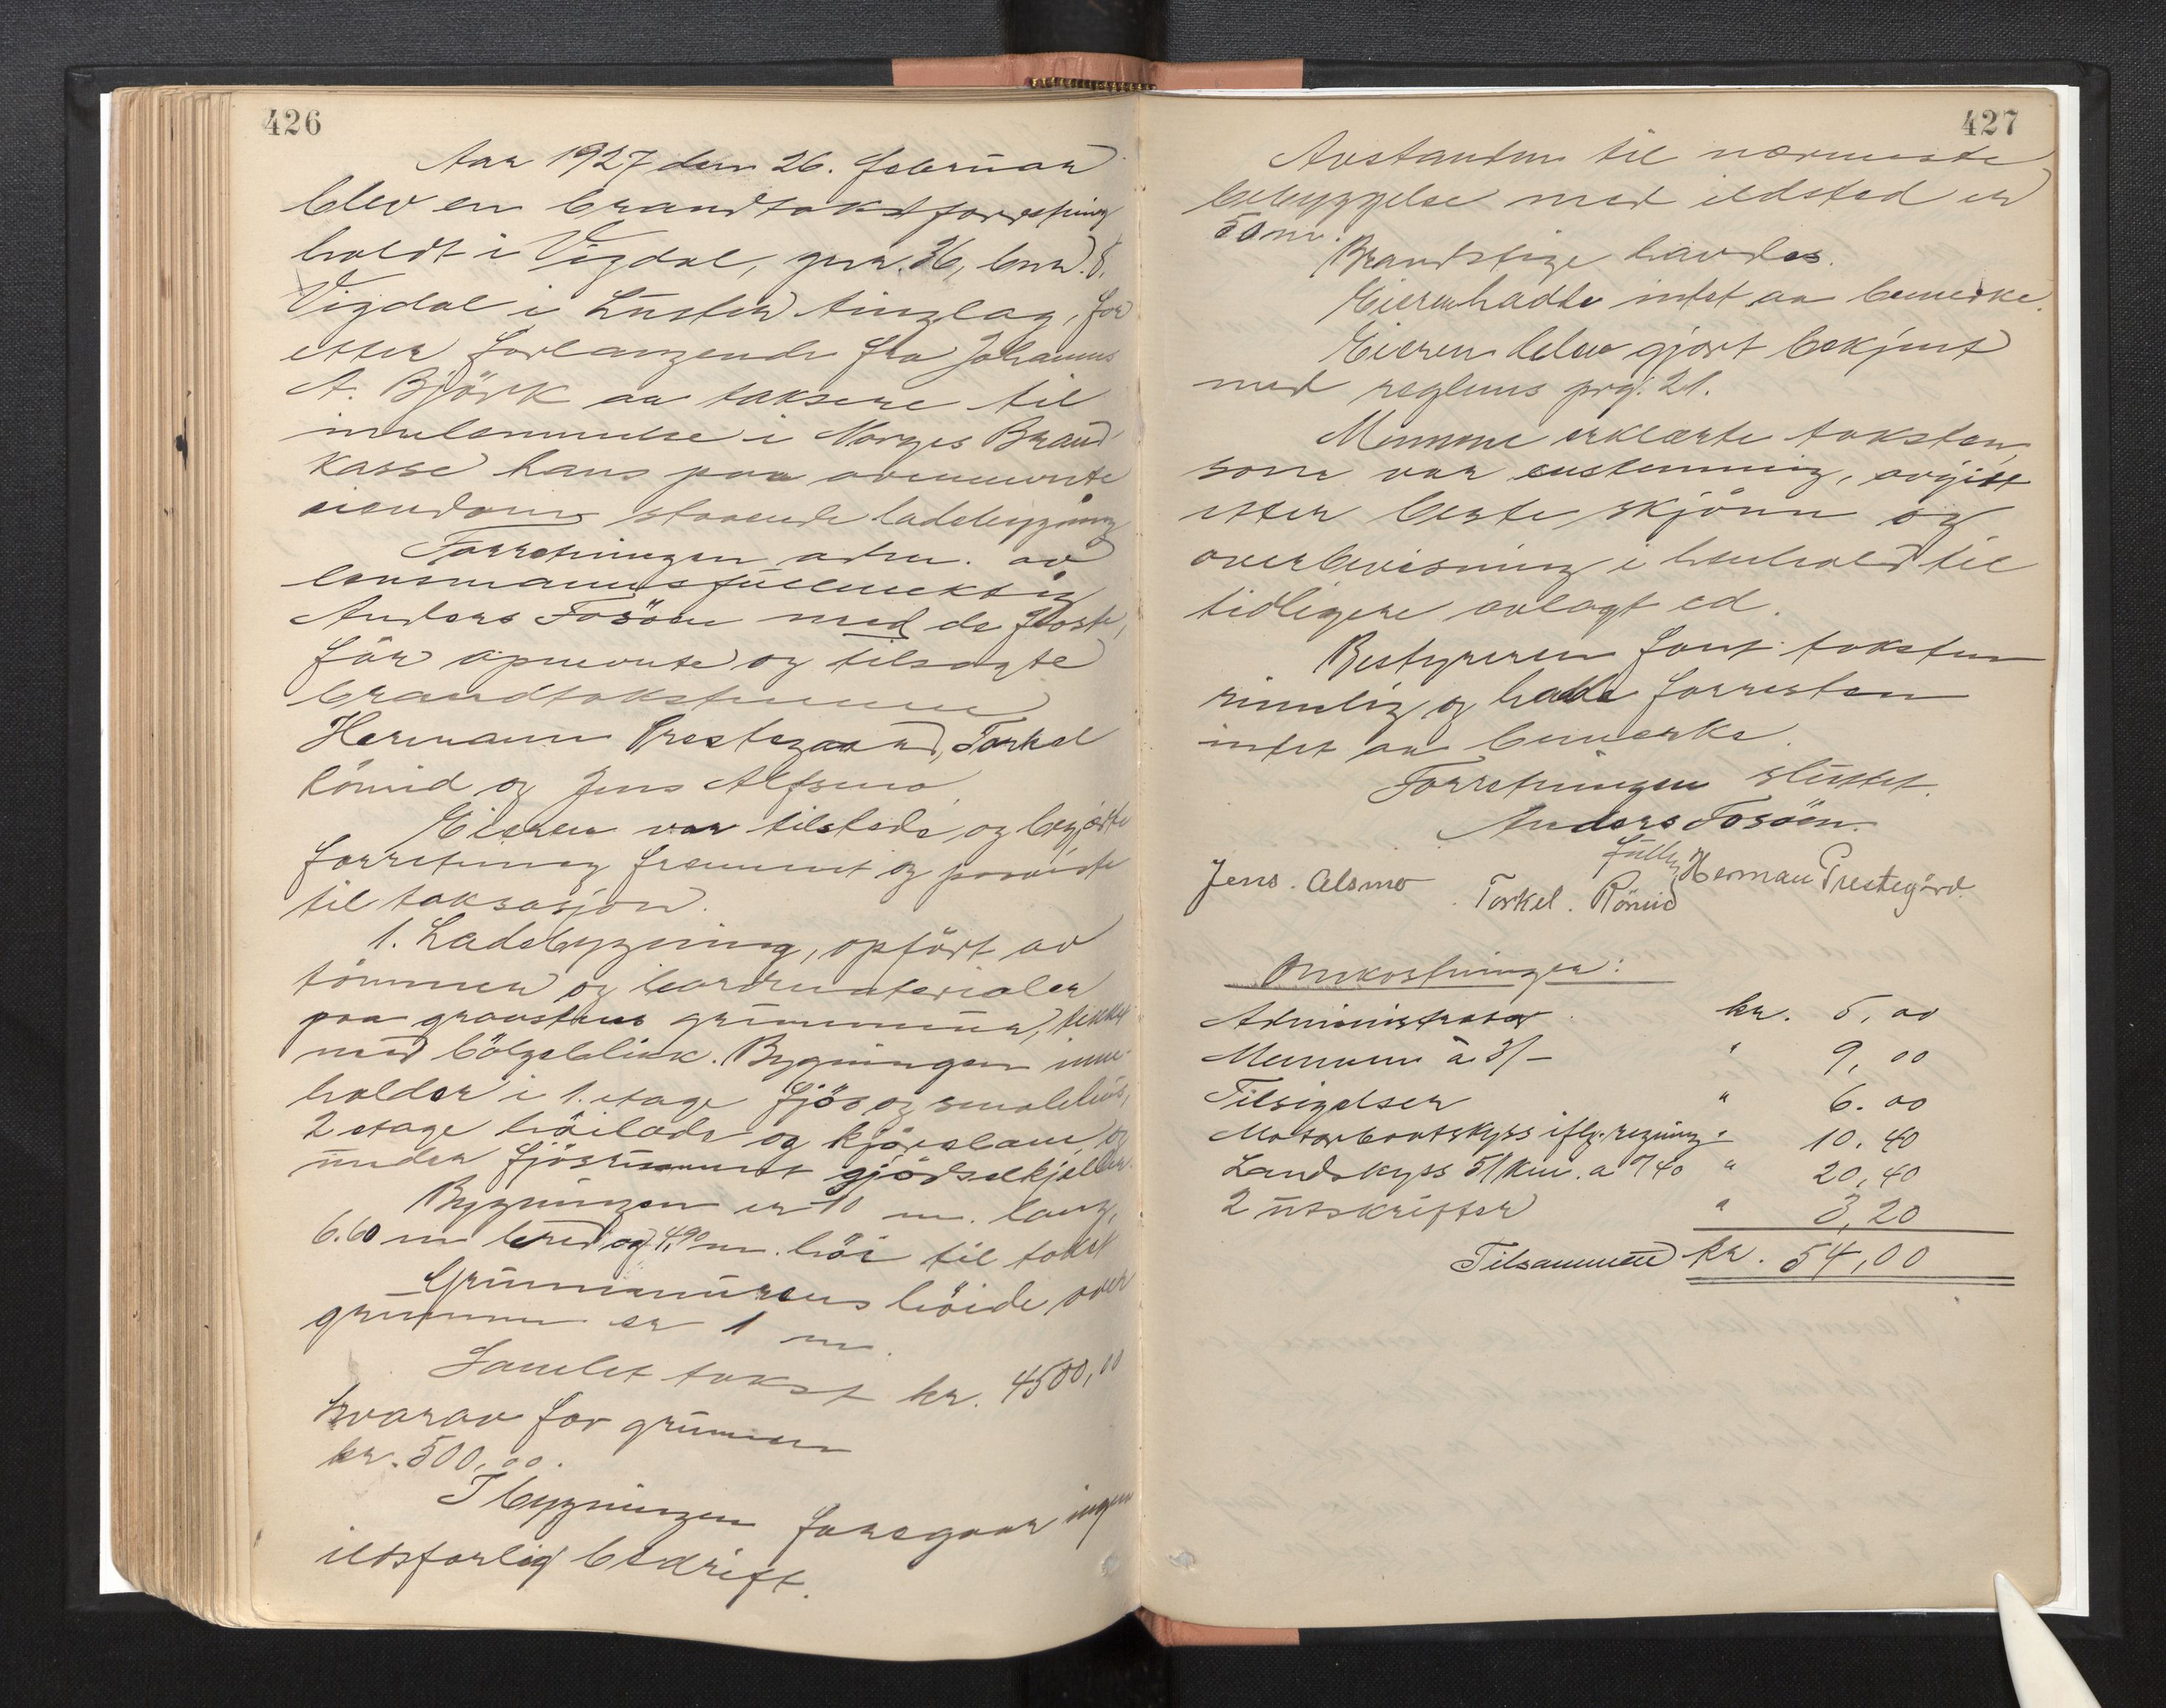 426
Aar 1927 den 26. februar
blev en brandtakstforretning
holdt i Vigdal, gnr. 36, bnr. 8.
Vigdal i Luster tinglag, for
etter forlangende fra Johannes
A. Björk aa taksere til
innlemmelse i Norges Brand
kasse hans paa ovennevnte
eiendom staaende ladebygning
Forretningen adm. av
lensmannsfullmektig
Anders Fosöen med de
för opnevnte og tilsagte
brandtakstmenn
Hermann Prestegaard, Torkel
Römid og Jens Alsmo
Eieren var tilstede og begjærte
forretning fremmet og paaviste
til taksasjon.
1. Ladebygning, opfört av
tömmer og bordmaterialer
paa graastens grunnmur, tekket
med bölgeblikk. Bygningen inne-
holder i 1. etage fjös og smalehus,
2 etage höilade og kjörelaave, og
under fjösrummet gjödselkjeller.
Bygningen er 10 m. lang,
6.60 m bred og 4,90 m. höi til taket
Grunnmurens höide over
grunnen er 1 m.
Samlet takst kr. 4500,00
hvorav for grunnmur
kr. 500,00.
I bygningen foregaar ingen
ildsfarlig bedrift.
427
Avstanden til nærmeste
bebyggelse med ildsted er
50 m.
Brandstige havdes.
Eieren hadde intet aa bemerke.
Eieren blev gjort bekjent
med reglenes prg. 21.
Mennene erklærte taksten,
som var enstemmig, avgitt
etter beste skjönn og
overbevisning i henhold til
tidligere avlagt ed.
Bestyreren fant taksten
rimelig og hadde forresten
intet aa bemerke.
Forretningen sluttet.
Anders Fosöen.
fullm.
Jens. Alsmo Torkel. Römid Herman Prestegård.
Omkostninger:
Administrator kr. 5,00
Mennene à 3/- " 9,00
Tilsigelser " 6.00
Motorbaatskyss iflg. regning " 10.40
Landskyss 51 km. a 0/40 " 20,40
2 utskrifter " 3,20
Tilsammen kr. 54,00